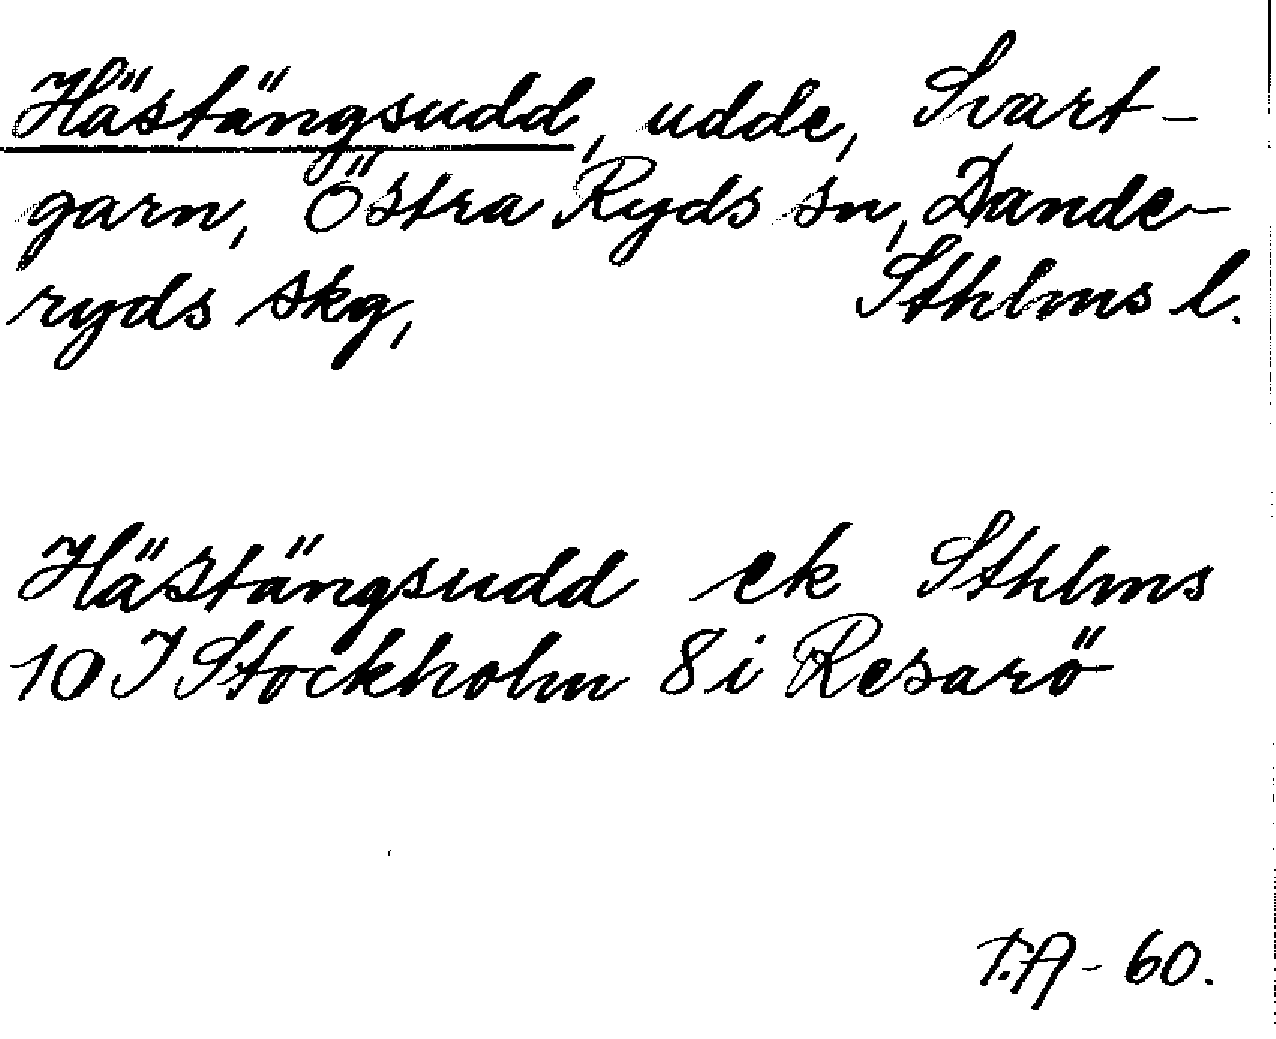 Hästängsudd, udde, Svart-
garn, Östra Ryds sn, Dande-
ryds skg, Sthlms l.
Hästängsudd ek Sthlms
10 I Stockholm 8 i Resarö
T.A - 60.